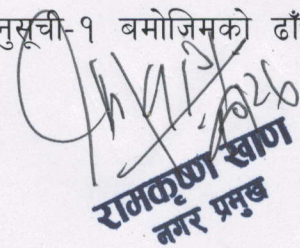 नुसूची-१ बमोजिमको ढाँ
रामकृष्ण खाण
नगर प्रमुख